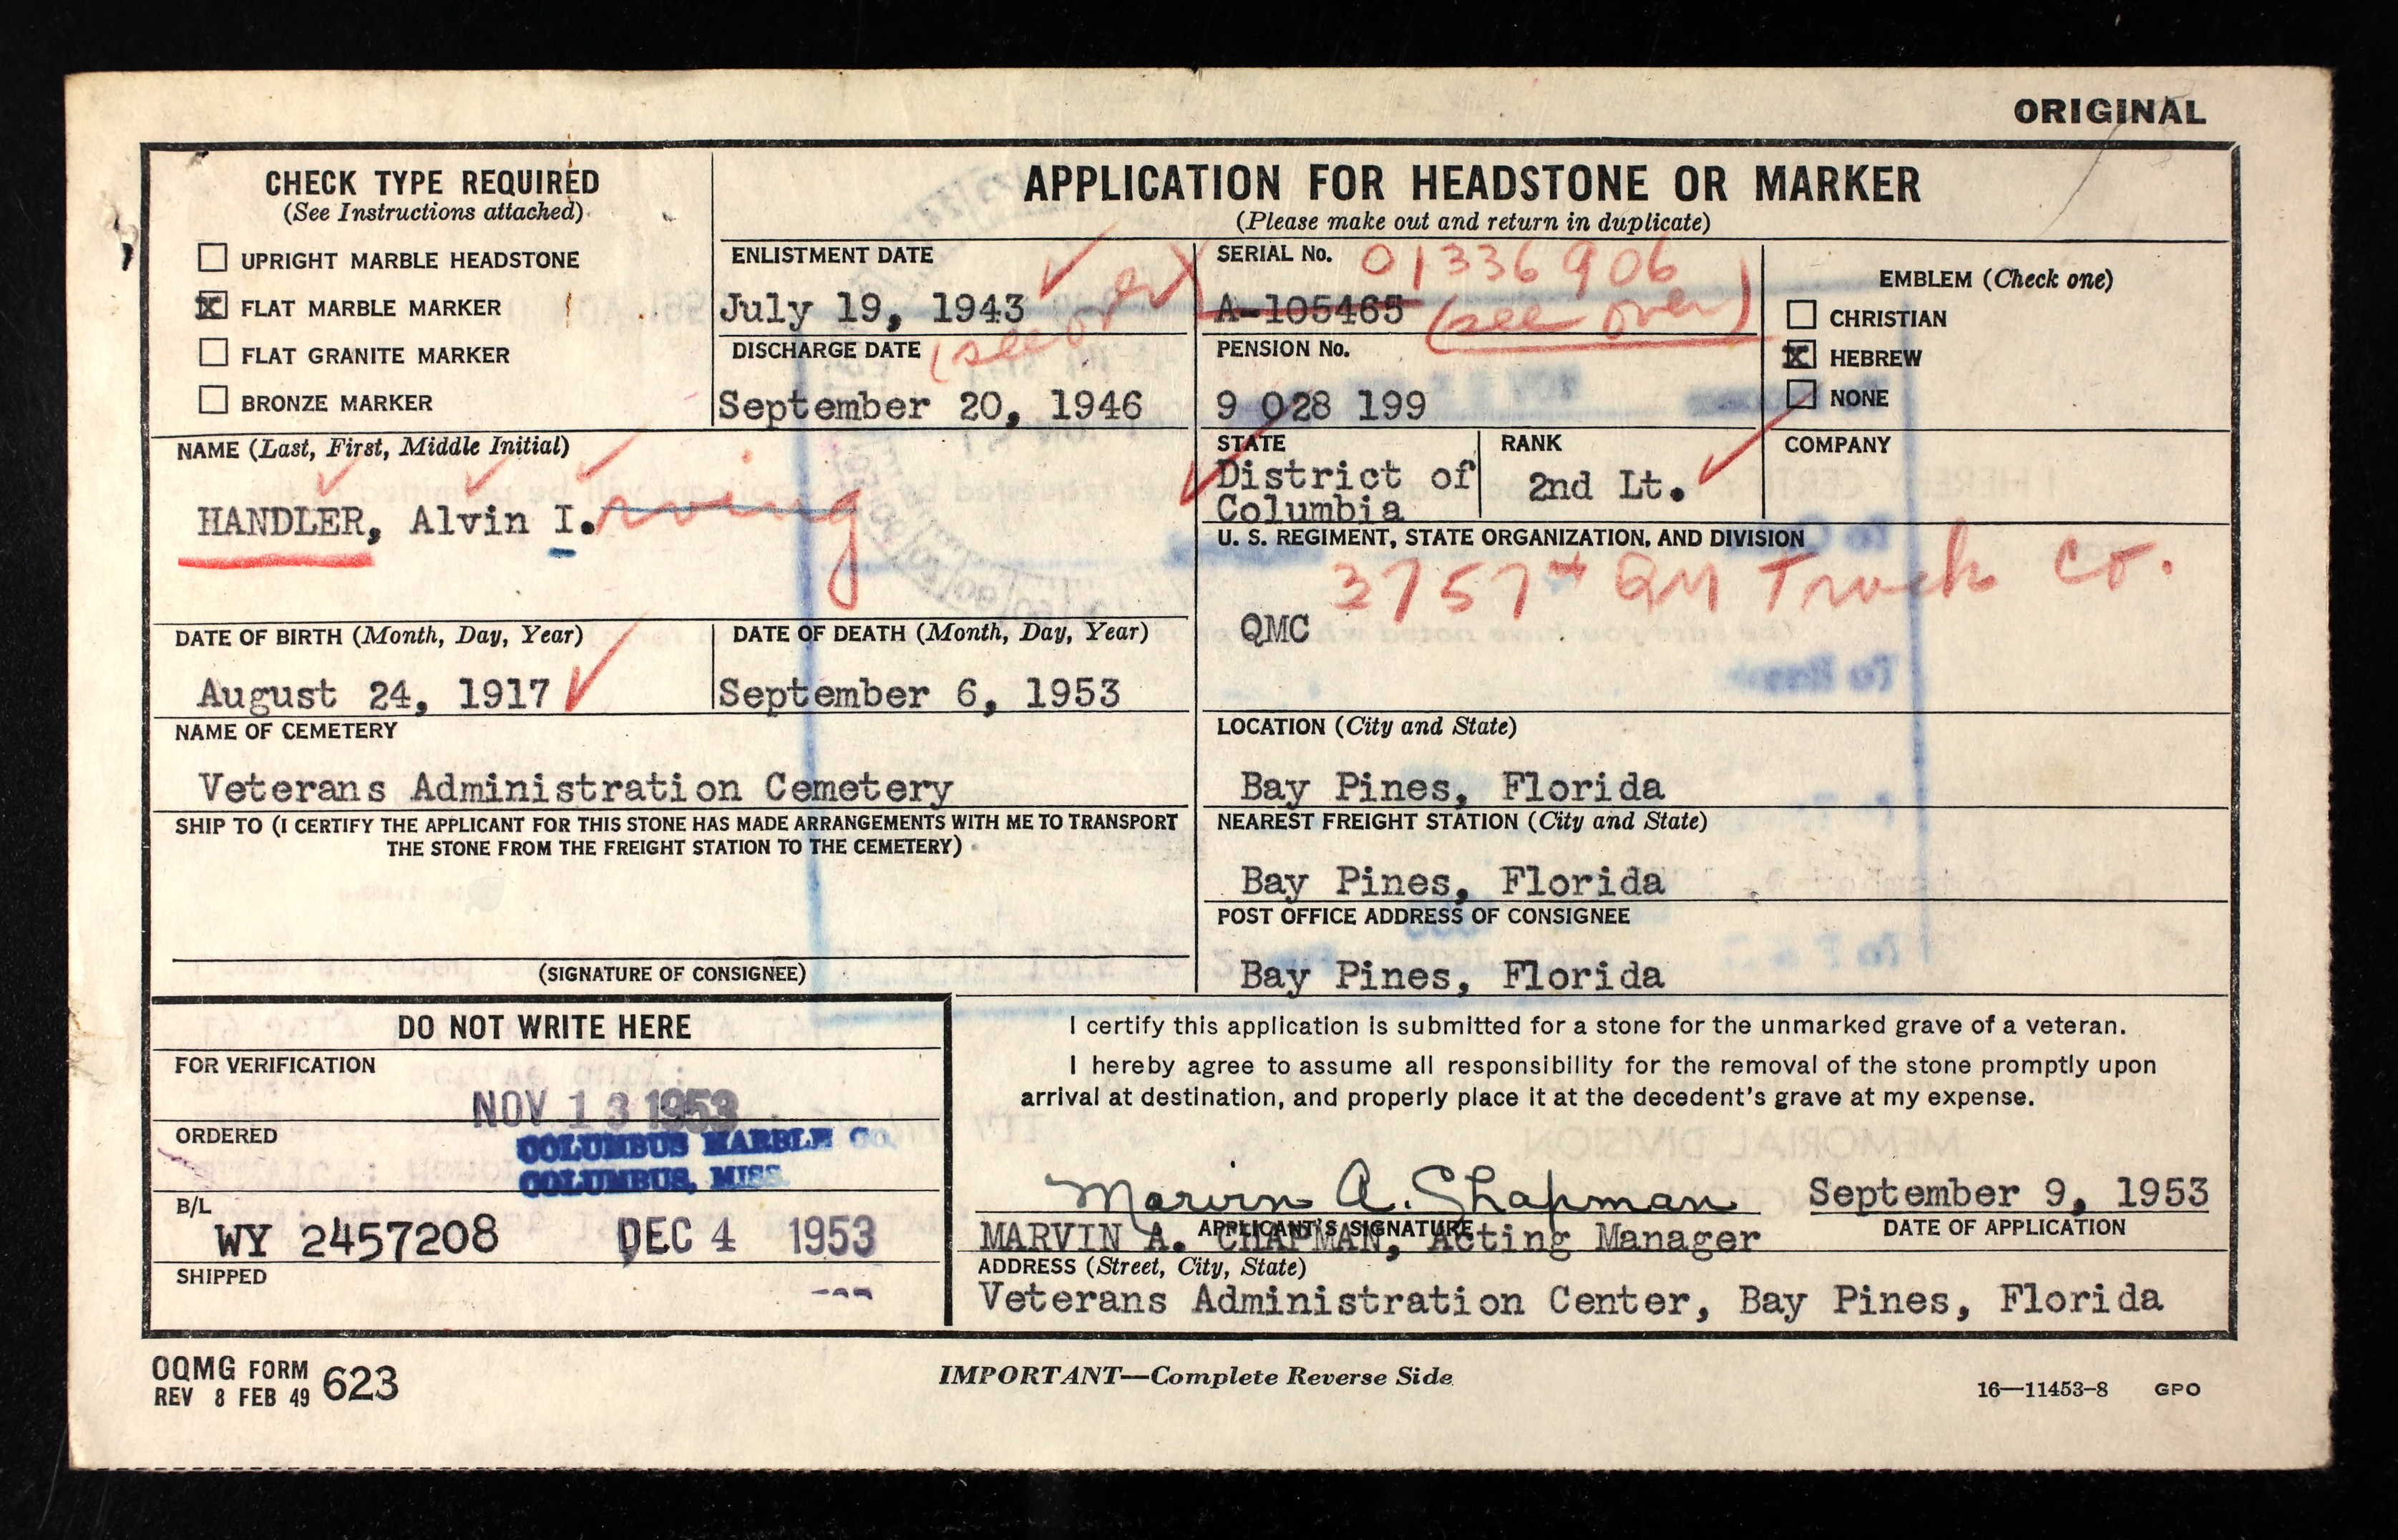 ORIGINAL
CHECK TYPE REQUIRED
(See Instructions attached)
UPRIGHT MARBLE HEADSTONE
X FLAT MARBLE MARKER
FLAT GRANITE MARKER
BRONZE MARKER
APPLICATION FOR HEADSTONE OR MARKER
(Please make out and return in duplicate)
ENLISTMENT DATE
July 19, 1943
DISCHARGE DATE (see over)
September 20, 1946
SERIAL No. 01336906
A-105465 (see over)
PENSION No.
9 028 199
EMBLEM (Check one)
CHRISTIAN
X HEBREW
NONE
NAME (Last, First, Middle Initial)
HANDLER, Alvin I.rving
STATE
District of
Columbia
RANK
2nd Lt.
COMPANY
U. S. REGIMENT, STATE ORGANIZATION, AND DIVISION
3757th QM Truck Co.
QMC
DATE OF BIRTH (Month, Day, Year)
August 24, 1917
DATE OF DEATH (Month, Day, Year)
September 6, 1953
NAME OF CEMETERY
Veterans Administration Cemetery
LOCATION (City and State)
Bay Pines, Florida
SHIP TO (I CERTIFY THE APPLICANT FOR THIS STONE HAS MADE ARRANGEMENTS WITH ME TO TRANSPORT
THE STONE FROM THE FREIGHT STATION TO THE CEMETERY)
NEAREST FREIGHT STATION (City and State)
Bay Pines, Florida
POST OFFICE ADDRESS OF CONSIGNEE
Bay Pines, Florida
(SIGNATURE OF CONSIGNEE)
DO NOT WRITE HERE
FOR VERIFICATION
NOV 13 1953
ORDERED
COLUMBUS MARBLE CO.
COLUMBUS, MISS.
B/L
WY 2457208 DEC 4 1953
SHIPPED
I certify this application is submitted for a stone for the unmarked grave of a veteran.
I hereby agree to assume all responsibility for the removal of the stone promptly upon
arrival at destination, and properly place it at the decedent's grave at my expense.
Marvin A. Chapman September 9, 1953
APPLICANT'S SIGNATURE DATE OF APPLICATION
MARVIN A. CHAPMAN, Acting Manager
ADDRESS (Street, City, State)
Veterans Administration Center, Bay Pines, Florida
OQMG FORM 623
REV 8 FEB 49
IMPORTANT—Complete Reverse Side
16—11453-8 GPO